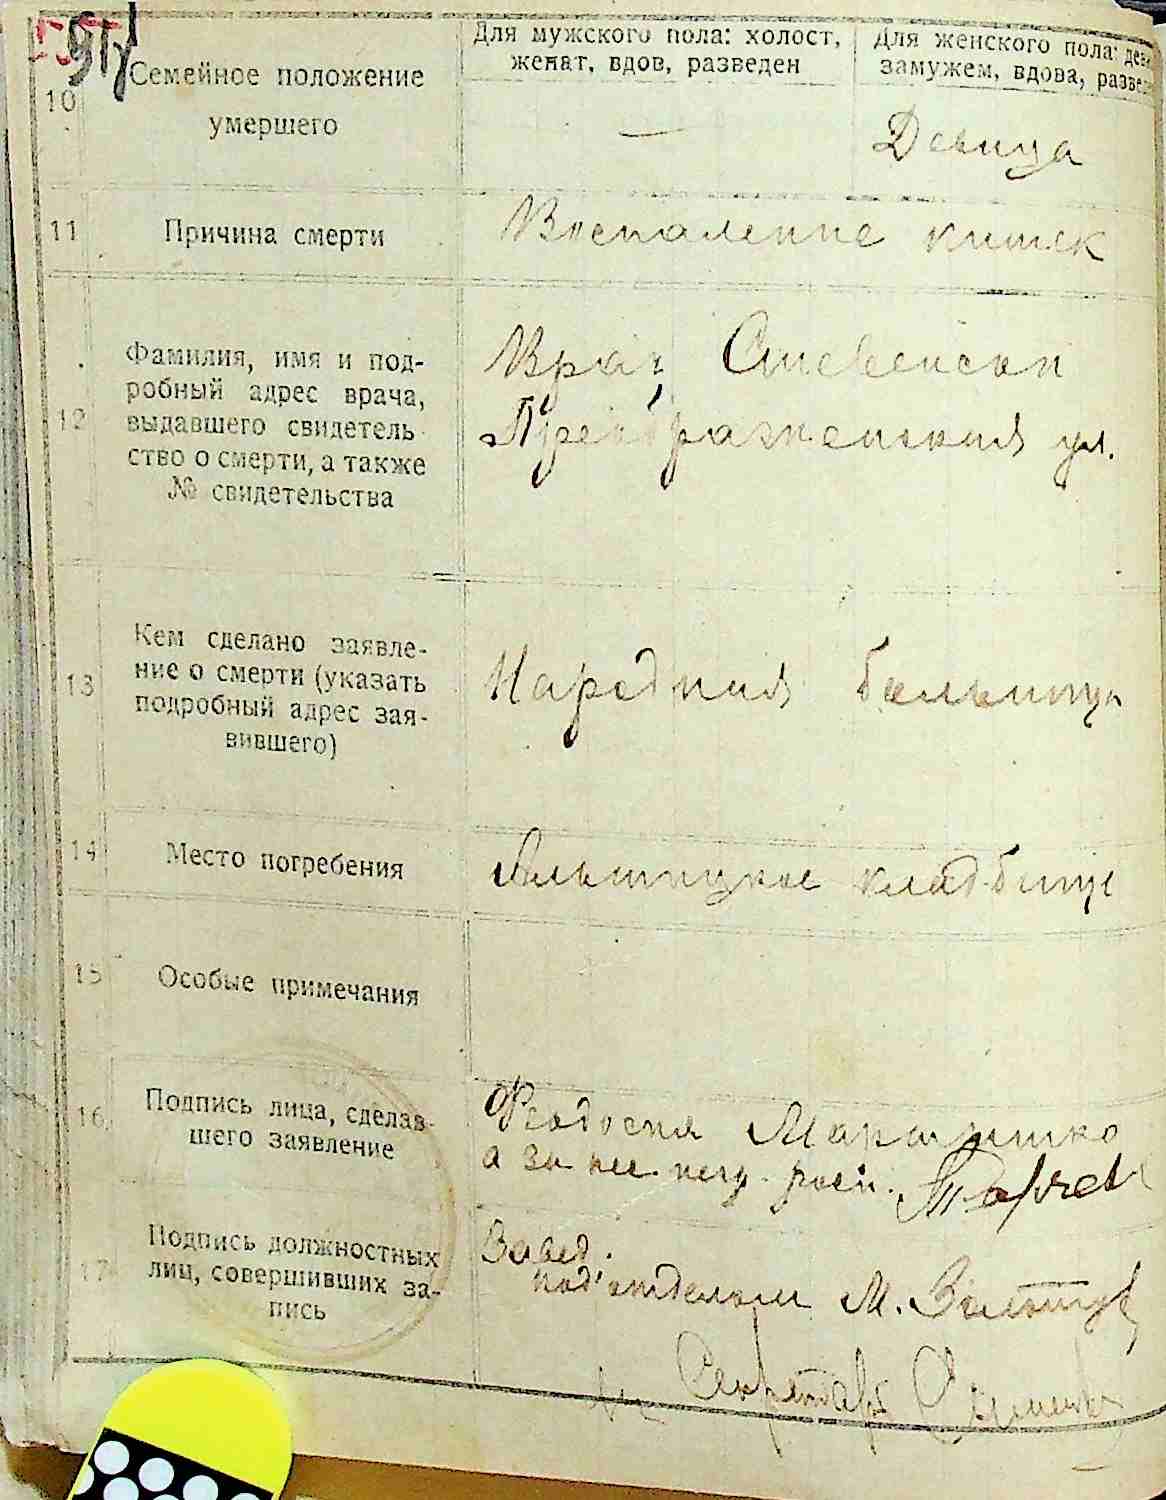 Для мужского пола: холост,
женат, вдов, разведен
Для женского пола:
замужем, вдова,
10
Семейное положение
умершего
—
Девица
11
Причина смерти
Воспаление кишек
12
Фамилия, имя и под-
робный адрес врача,
выдавшего свидетель-
ство о смерти, а также
№ свидетельства
Врач
Преображенская ул.
13
Кем сделано заявле-
ние о смерти (указать
подробный адрес зая-
вившего)
Народная больница
14
Место погребения
кладбище
15
Особые примечания
16
Подпись лица, сделав-
шего заявление
Феодосия
а за нее негр. росп.
17
Подпись должностных
лиц, совершивших за-
пись
Завед.
под'отделом М.
Секретарь